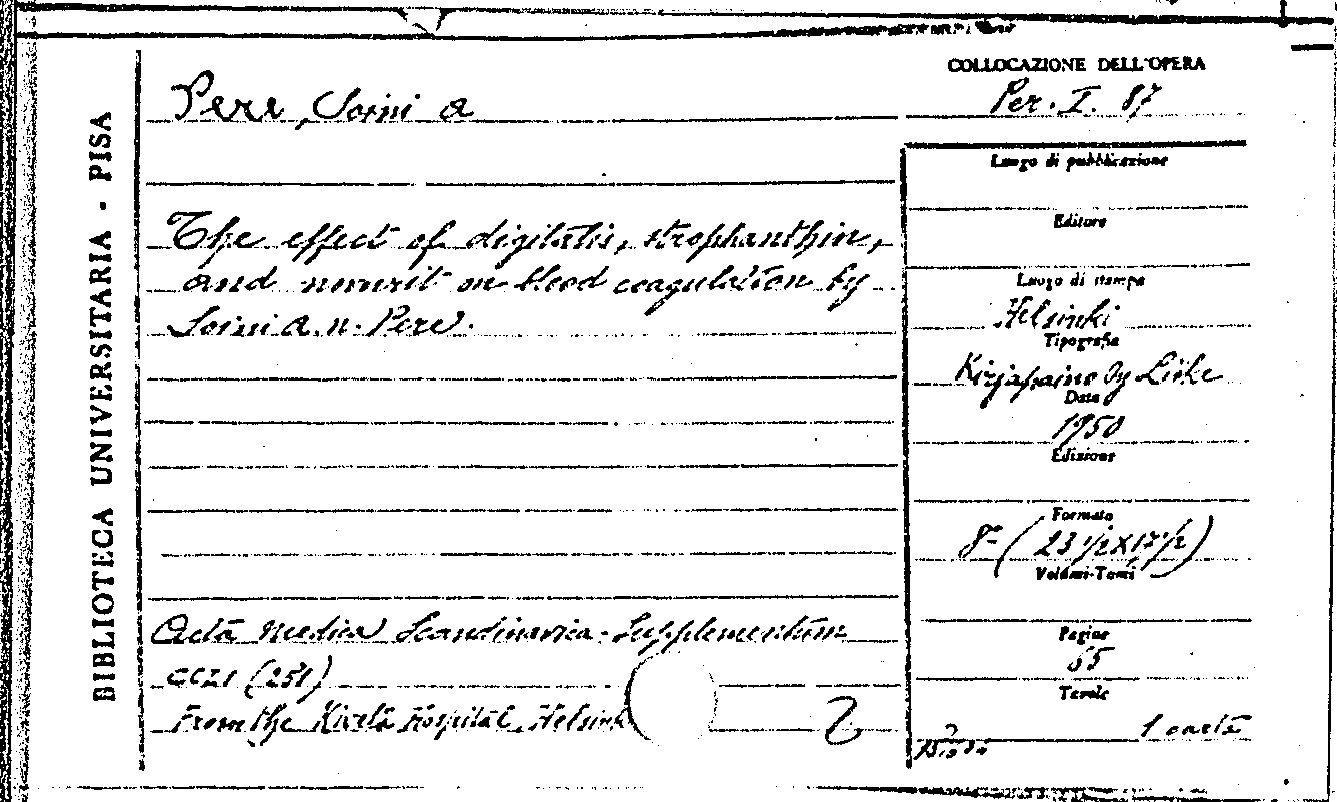 BIBLIOTECA UNIVERSITARIA - PISA
Pere, Soini a
The effect of digitalis, strophanthin,
and novurit on blood coagulation by
Soini a. n. Pere.
Acta Medica Scandinavica. Supplementum
CCLI (251)
From the Kivelä Hospital, Helsink
2
COLLOCAZIONE DELL'OPERA
Per. I. 87
Luogo di pubblicazione
Editore
Luogo di stampa
Helsinki
Tipografia
Kirjapaino Oy Liike
Data
1950
Edizione
Formato
8° (23 1/2 x 17 1/2)
Volumi-Tomi
Pagine
55
Tavole
1 carta